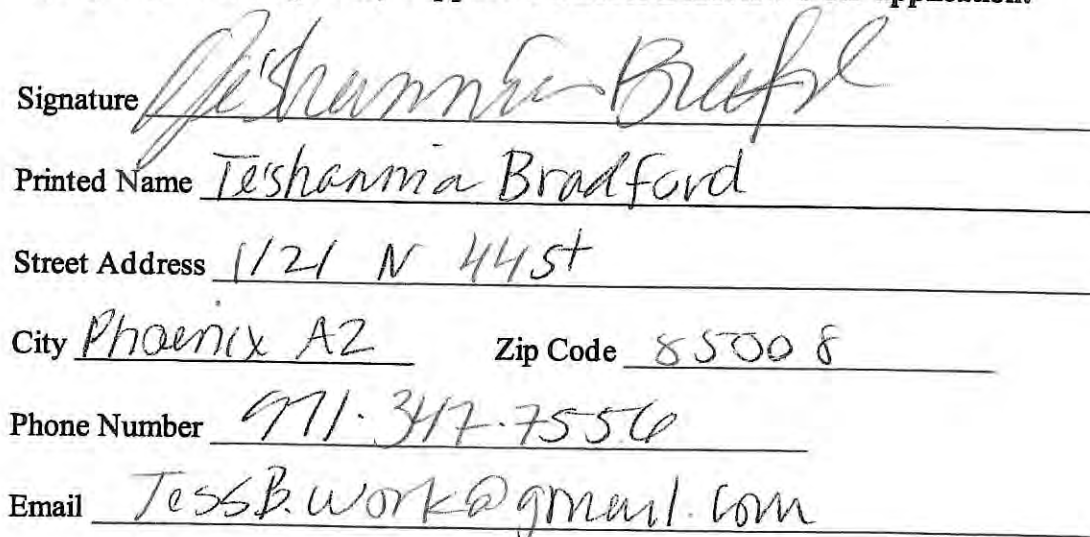 application.
Signature Te'shannia Bradford
Printed Name Te'shannia Bradford
Street Address 1121 N 44 st
City Phoenix AZ Zip Code 85008
Phone Number 971.347.7556
Email TessB.work@gmail.com